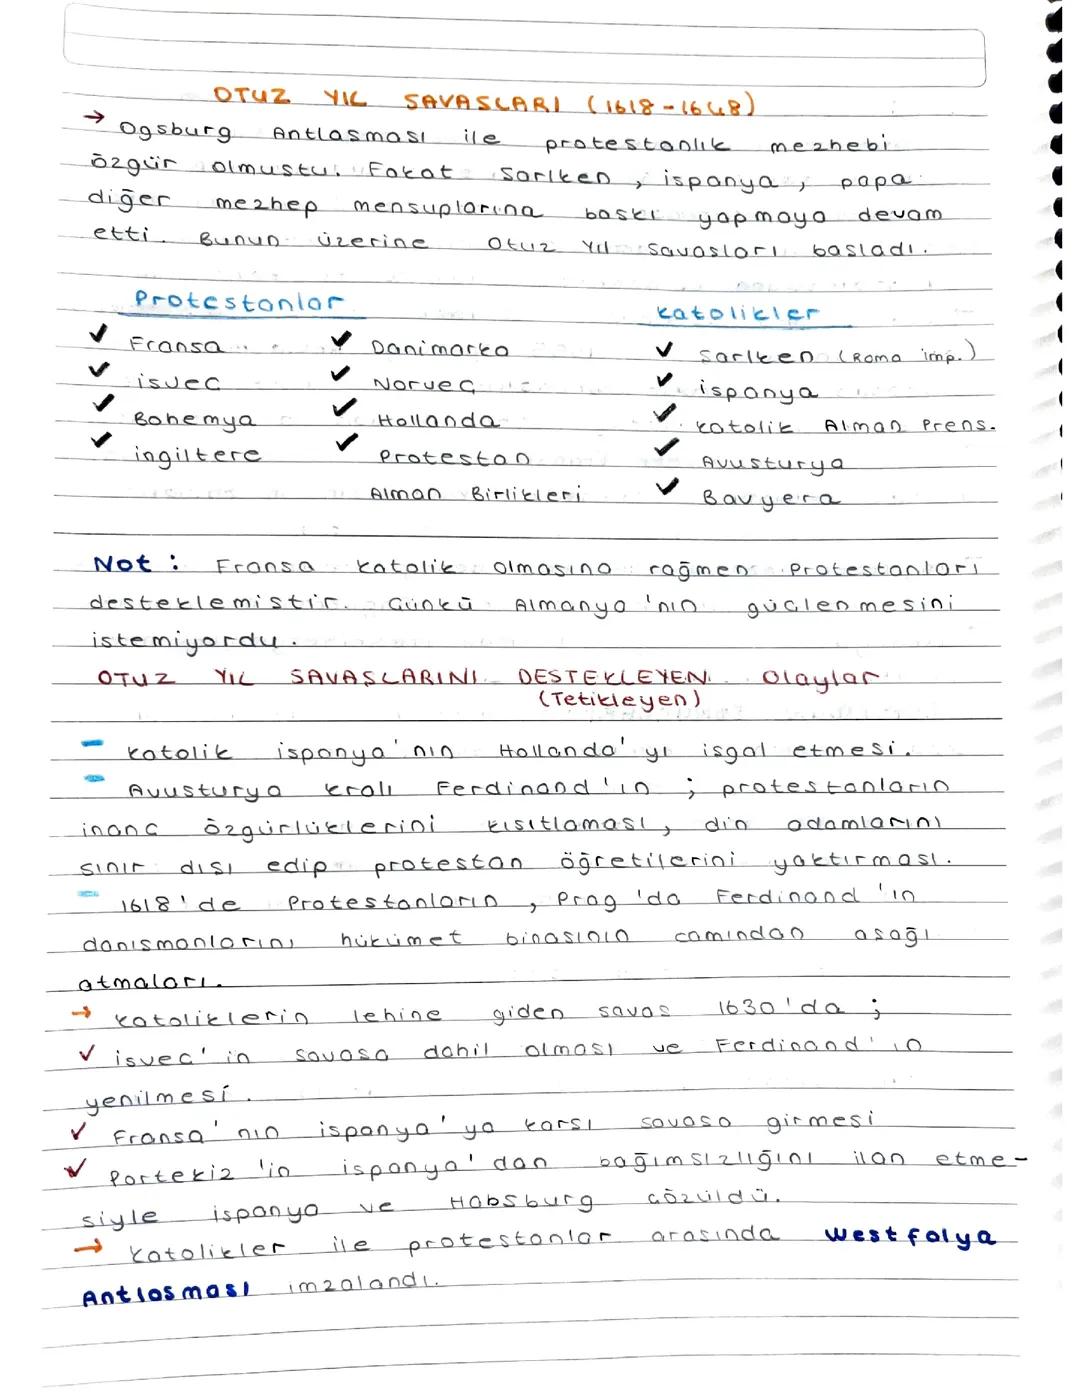 OTUZ YIL SAVASLARI (1618-1648)
→ Ogsburg Antlasması ile protestanlık mezhebi
özgür olmustu. Fakat Sarlken, ispanya, papa
diğer mezhep mensuplarına baskı yapmaya devam
etti. Bunun üzerine Otuz Yıl Savasları basladı.
Protestanlar Katolikler
✓ Fransa ✓ Danimarka ✓ Sarlken (Roma imp.)
✓ isvec ✓ Norvec ✓ ispanya
✓ Bohemya ✓ Hollanda ✓ Katolik Alman Prens.
✓ ingiltere ✓ Protestan ✓ Avusturya
Alman Birlikleri ✓ Bavyera
Not: Fransa Katolik olmasına rağmen Protestanları
desteklemistir. Cünkü Almanya'nın güclenmesini
istemiyordu.
OTUZ YIL SAVASLARINI DESTEKLEYEN Olaylar
(Tetikleyen)
- Katolik ispanya'nın Hollanda'yı isgal etmesi.
- Avusturya kralı Ferdinand'ın; protestanların
inanc özgürlüklerini kısıtlaması, din adamlarını
sınır dısı edip protestan öğretilerini yaktırması.
- 1618'de Protestanların, Prag'da Ferdinand'ın
danısmanlarını hükümet binasının camından asağı
atmaları.
→ Katoliklerin lehine giden savas 1630'da;
✓ isvec'in savasa dahil olması ve Ferdinand'ın
yenilmesi.
✓ Fransa'nın ispanya'ya karsı savasa girmesi
✓ Portekiz'in ispanya'dan bağımsızlığını ilan etme-
siyle ispanya ve Habsburg cözüldü.
→ Katolikler ile protestanlar arasında Westfalya
Antlasması imzalandı.